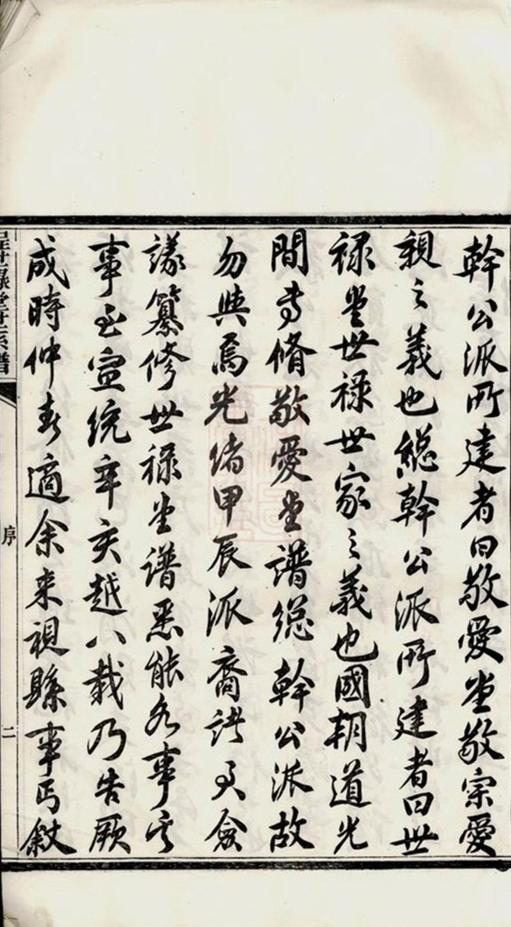 幹公派所建者曰敬愛堂敬宗愛
親之義也總幹公派所建者曰世
祿堂世祿世家之義也國朝道光
間專脩敬愛堂譜總幹公派故
勿與焉光緒甲辰派裔諸君僉
議纂修世祿堂譜悉能各事其
事至宣統辛亥越八載乃告厥
成時仲春適余來視縣事丐敘
世祿堂世系譜
序
二